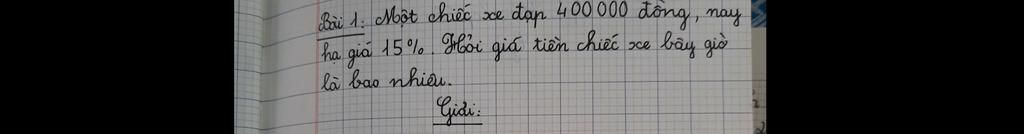 Bài 1: Một chiếc xe đạp 400 000 đồng, nay
hạ giá 15%. Hỏi giá tiền chiếc xe bây giờ
là bao nhiêu.
Giải: